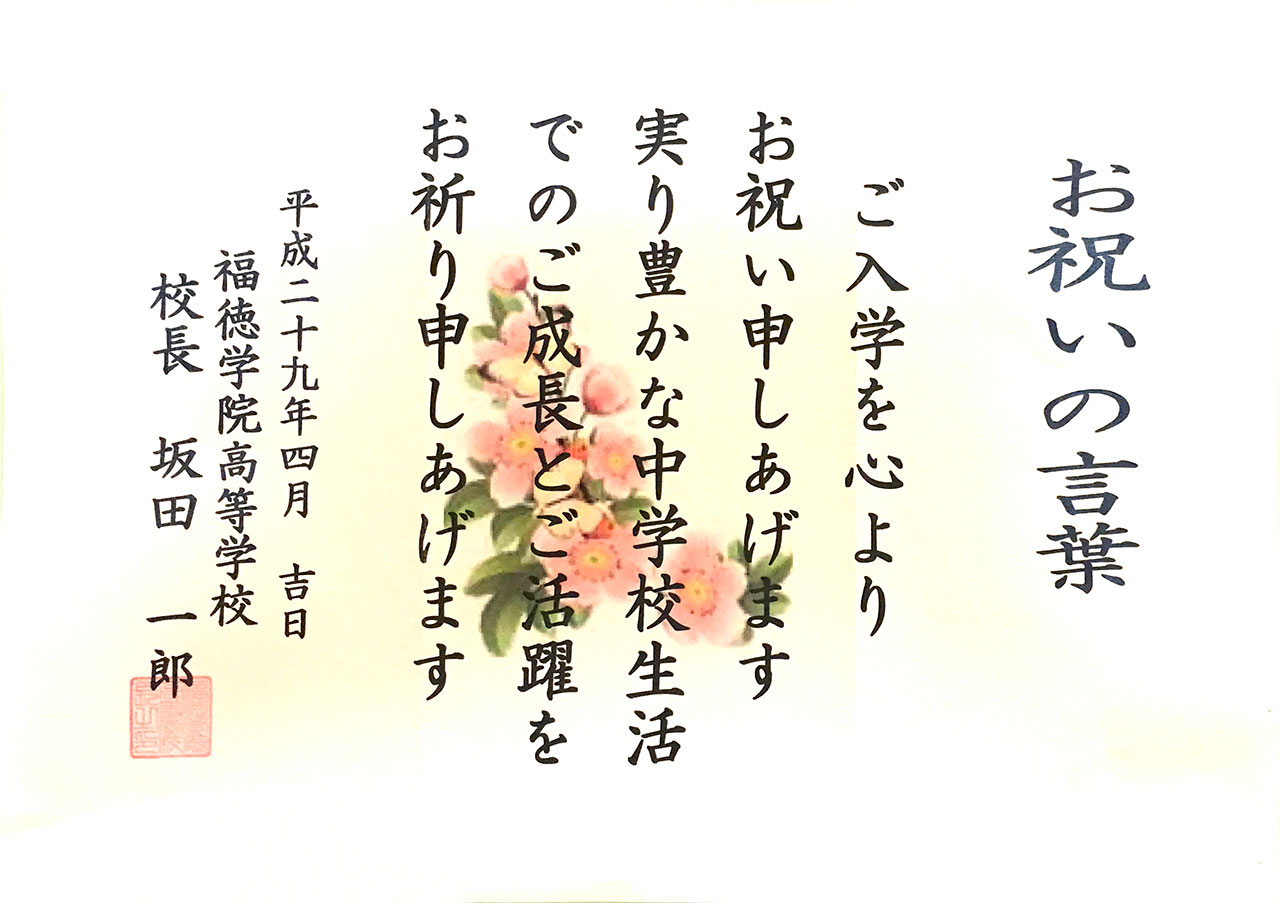 お祝いの言葉
ご入学を心より
お祝い申しあげます
実り豊かな中学校生活
でのご成長とご活躍を
お祈り申しあげます
平成二十九年四月　吉日
福徳学院高等学校
校長　坂田　一郎